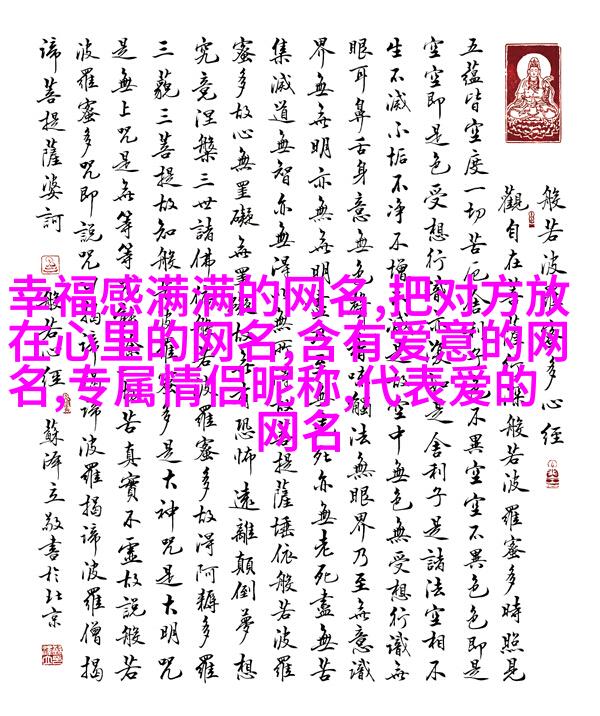 幸福感满满的网名,把对方放
在心里的网名,含有爱意的网
名,专属情侣昵称,代表爱的
网名
般若波多心經
觀自在菩般若波羅蜜多時照見
五蘊皆空度一切苦厄舍利子色不異空空不異色色即是
空空即是色受想行識亦是舍利子是諸法空相不
生不滅不垢不净不增空中無色無受想行識無
眼耳鼻舌身意無色觸法無眼界乃至無意識
界無無明亦無無明死亦無老死盡無苦
集滅道無智亦無得以無所菩提薩埵依般若波羅
蜜多故心無罣礙無有恐怖遠離顛倒夢想
究竟涅槃三世諸佛依般若波羅蜜多故得阿耨多羅
三藐三菩提故知般多是大神咒是大明咒
是無上咒是無等等苦真實不虛故說般若
波羅蜜多咒即說咒揭諦波羅揭諦波羅僧揭
諦菩提薩婆訶
般若心經
敬書於北京